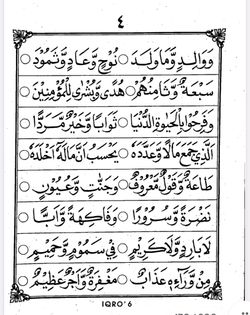 ٤
وَوَالِدٍ وَّمَا وَلَدَ ○ نُوْحٍ وَّعَادٍ وَّثَمُوْدَ ○
سَبْعَةٌ وَّثَامِنُهُمْ ○ هُدًى وَّبُشْرٰى لِلْمُؤْمِنِيْنَ
وَفَرِحُوْا بِالْحَيٰوةِ الدُّنْيَا ○ ثَوَابًا وَّخَيْرٌ مَّرَدًّا ○
الَّذِيْ جَمَعَ مَالًا وَّعَدَّدَهٗ ○ يَحْسَبُ اَنَّ مَالَهٗٓ اَخْلَدَهٗ ○
طَاعَةٌ وَّقَوْلٌ مَّعْرُوْفٌ ○ وَجَنّٰتٍ وَّعُيُوْنٍ ○
نَضْرَةً وَّسُرُوْرًا ○ وَفَاكِهَةً وَّاَبًّا ○
لَا بَارِدٍ وَّلَا كَرِيْمٍ ○ فِيْ سَمُوْمٍ وَّحَمِيْمٍ ○
مِنْ وَّرَآءِهٖ عَذَابٌ ○ مَغْفِرَةٌ وَّاَجْرٌ عَظِيْمٌ ○
IQRO' 6